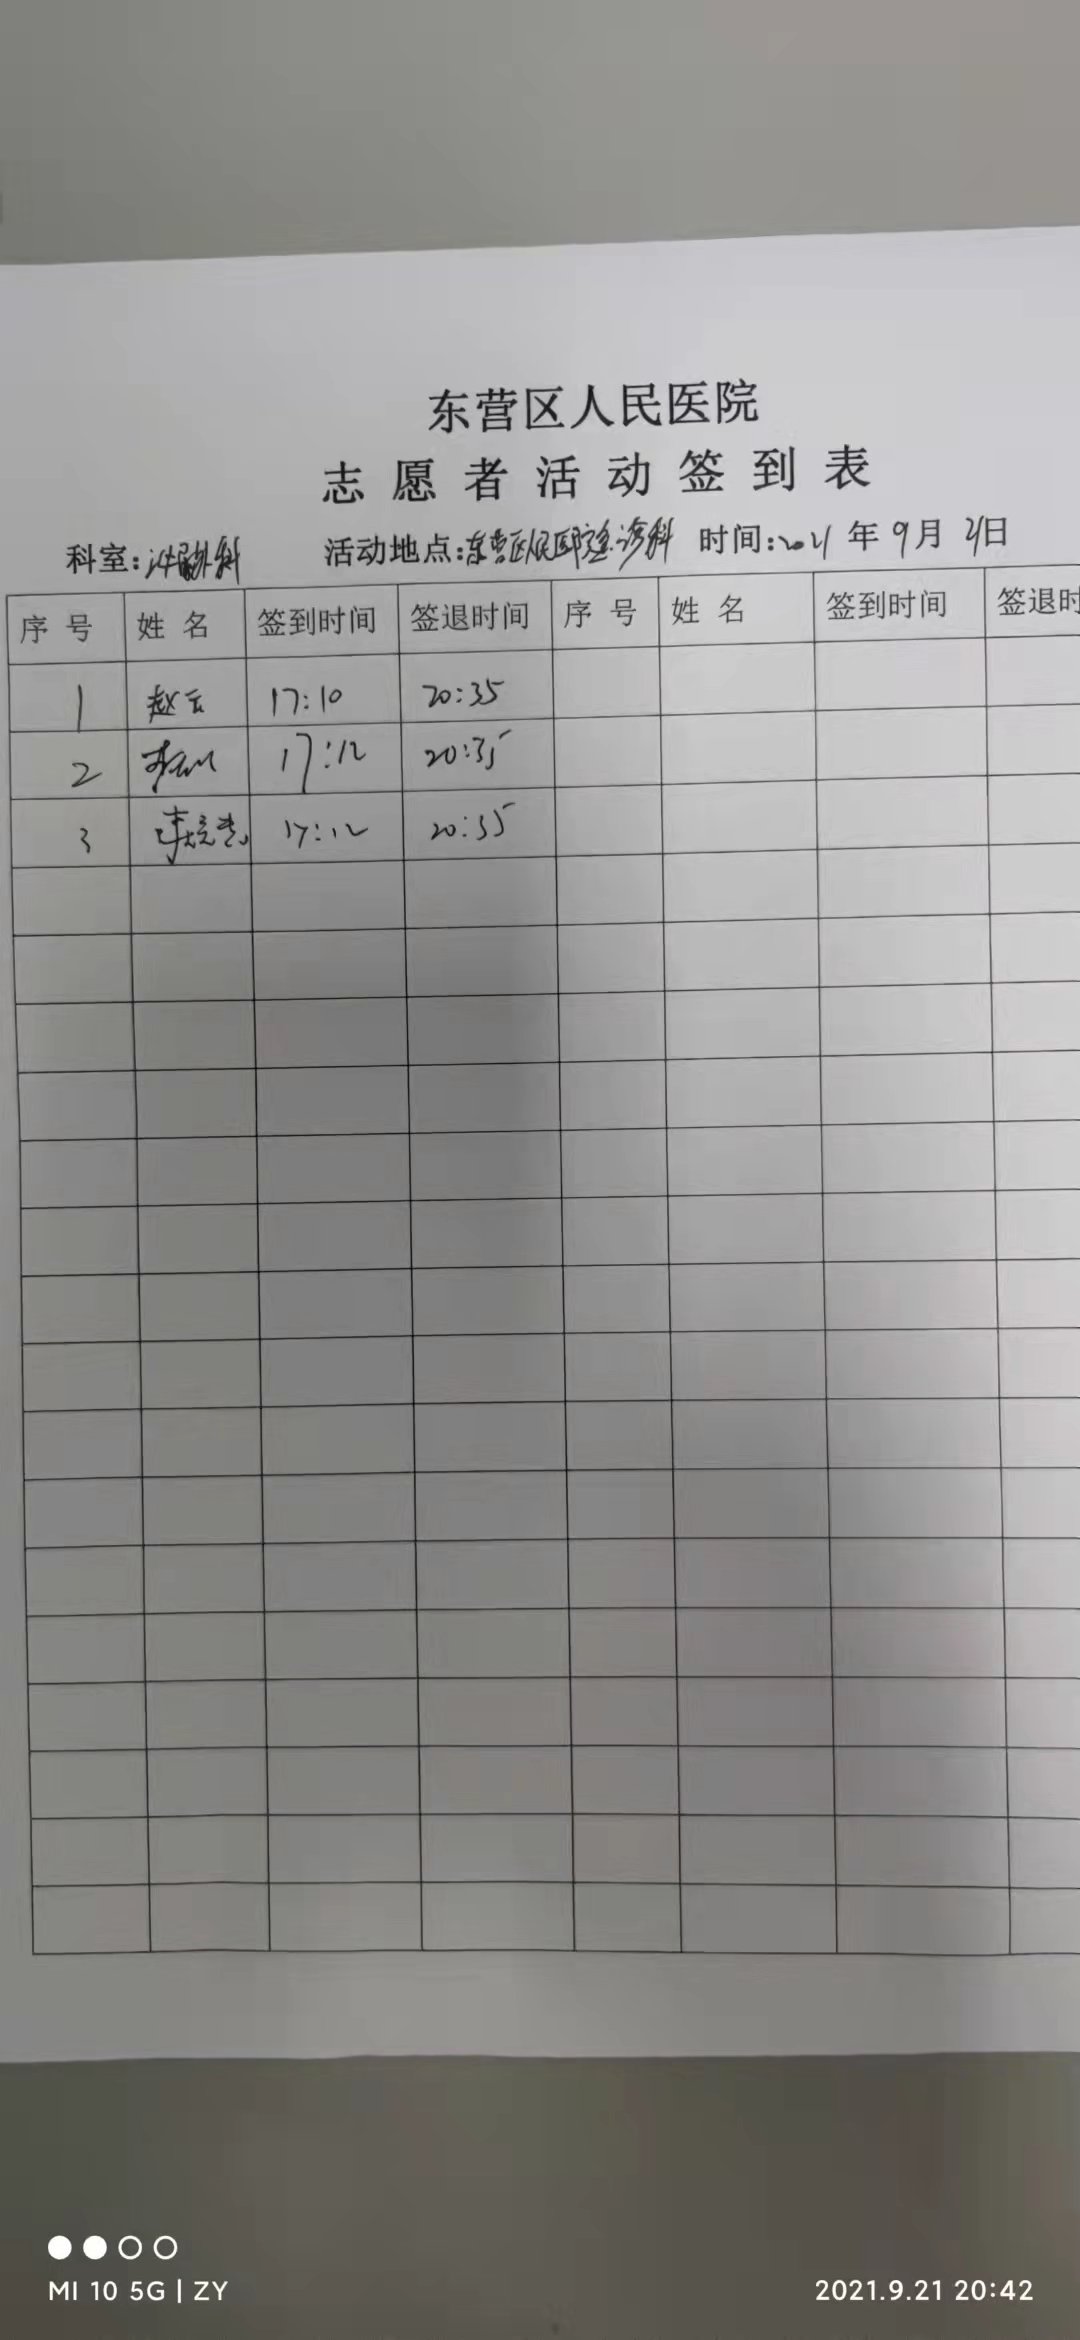 东营区人民医院
志愿者活动签到表
科室:泌尿外科 活动地点:东营区人民医院急诊科 时间:2021年9月21日
序号 姓名 签到时间 签退时间 序号 姓名 签到时间 签退时
1 赵云 17:10 20:35
2 17:12 20:35
3 17:12 20:35
MI 10 5G | ZY
2021.9.21 20:42